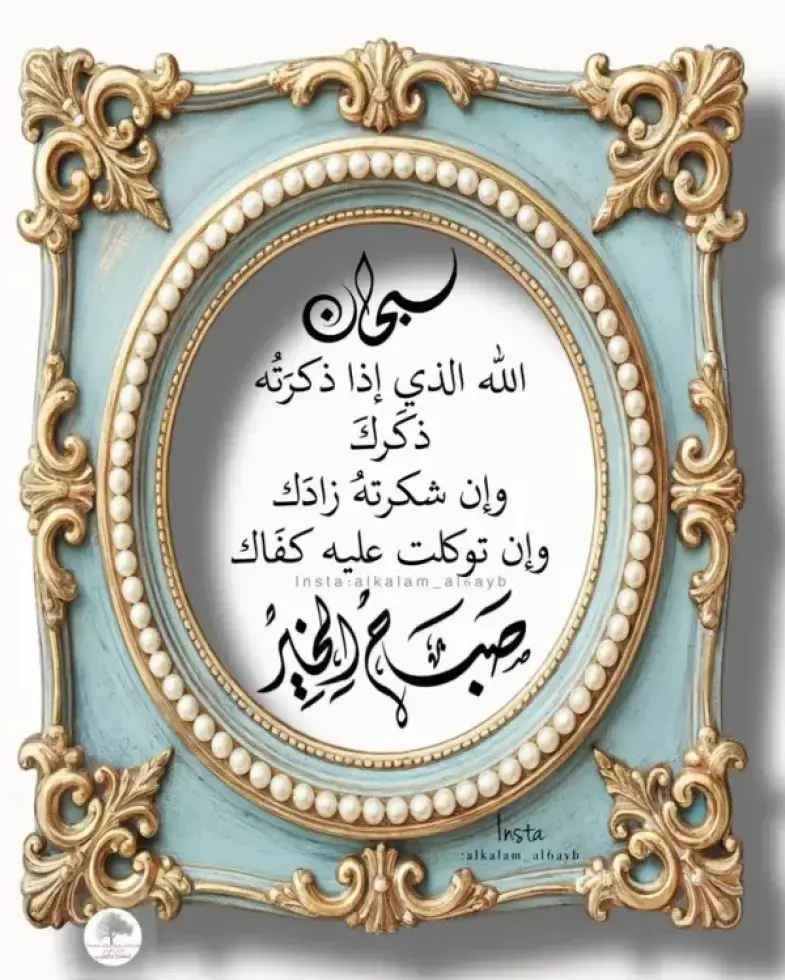 سبحان
الله الذي إذا ذكرَتُه
ذكَركَ
وإن شكرتهُ زادَك
وإن توكلت عليه كفَاك
Insta:alkalam_al6ayb
صَبَاحُ الخَيْرِ
Insta
:alkalam_al6ayb